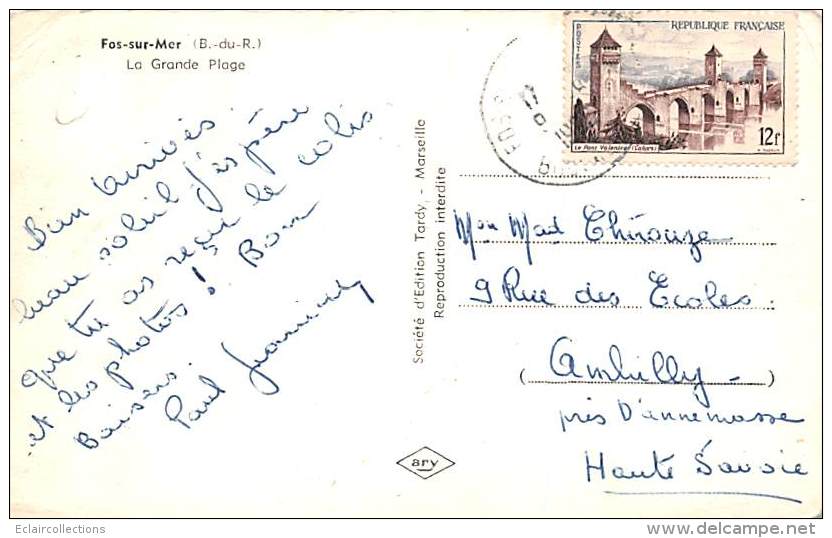 Fos-sur-Mer (B.-du-R.)
La Grande Plage
Bien arrivés.
beau soleil j'espère
que tu as reçu le colis
et les photos! Bon
Baisers.
Paul
Société d'Edition Tardy, - Marseille
Reproduction interdite
ary
POSTES
REPUBLIQUE FRANÇAISE
Le Pont Valentré (Cahors)
12f
FOS
Thirouze
9 Rue des Ecoles.
(Ambilly -)
près D'annemasse
Haute Savoie
Eclaircollections
delcampe.net